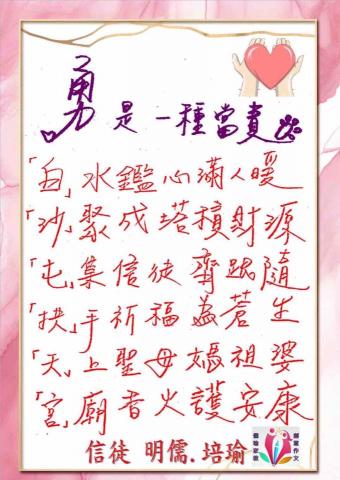 勇是一種當責
「白」水鑑心滿人暖
「沙」聚成塔積財源
「屯」集信徒齊跟隨
「拱」手祈福為蒼生
「天」上聖母媽祖婆
「宮」廟香火護安康
信徒 明儒.培瑜